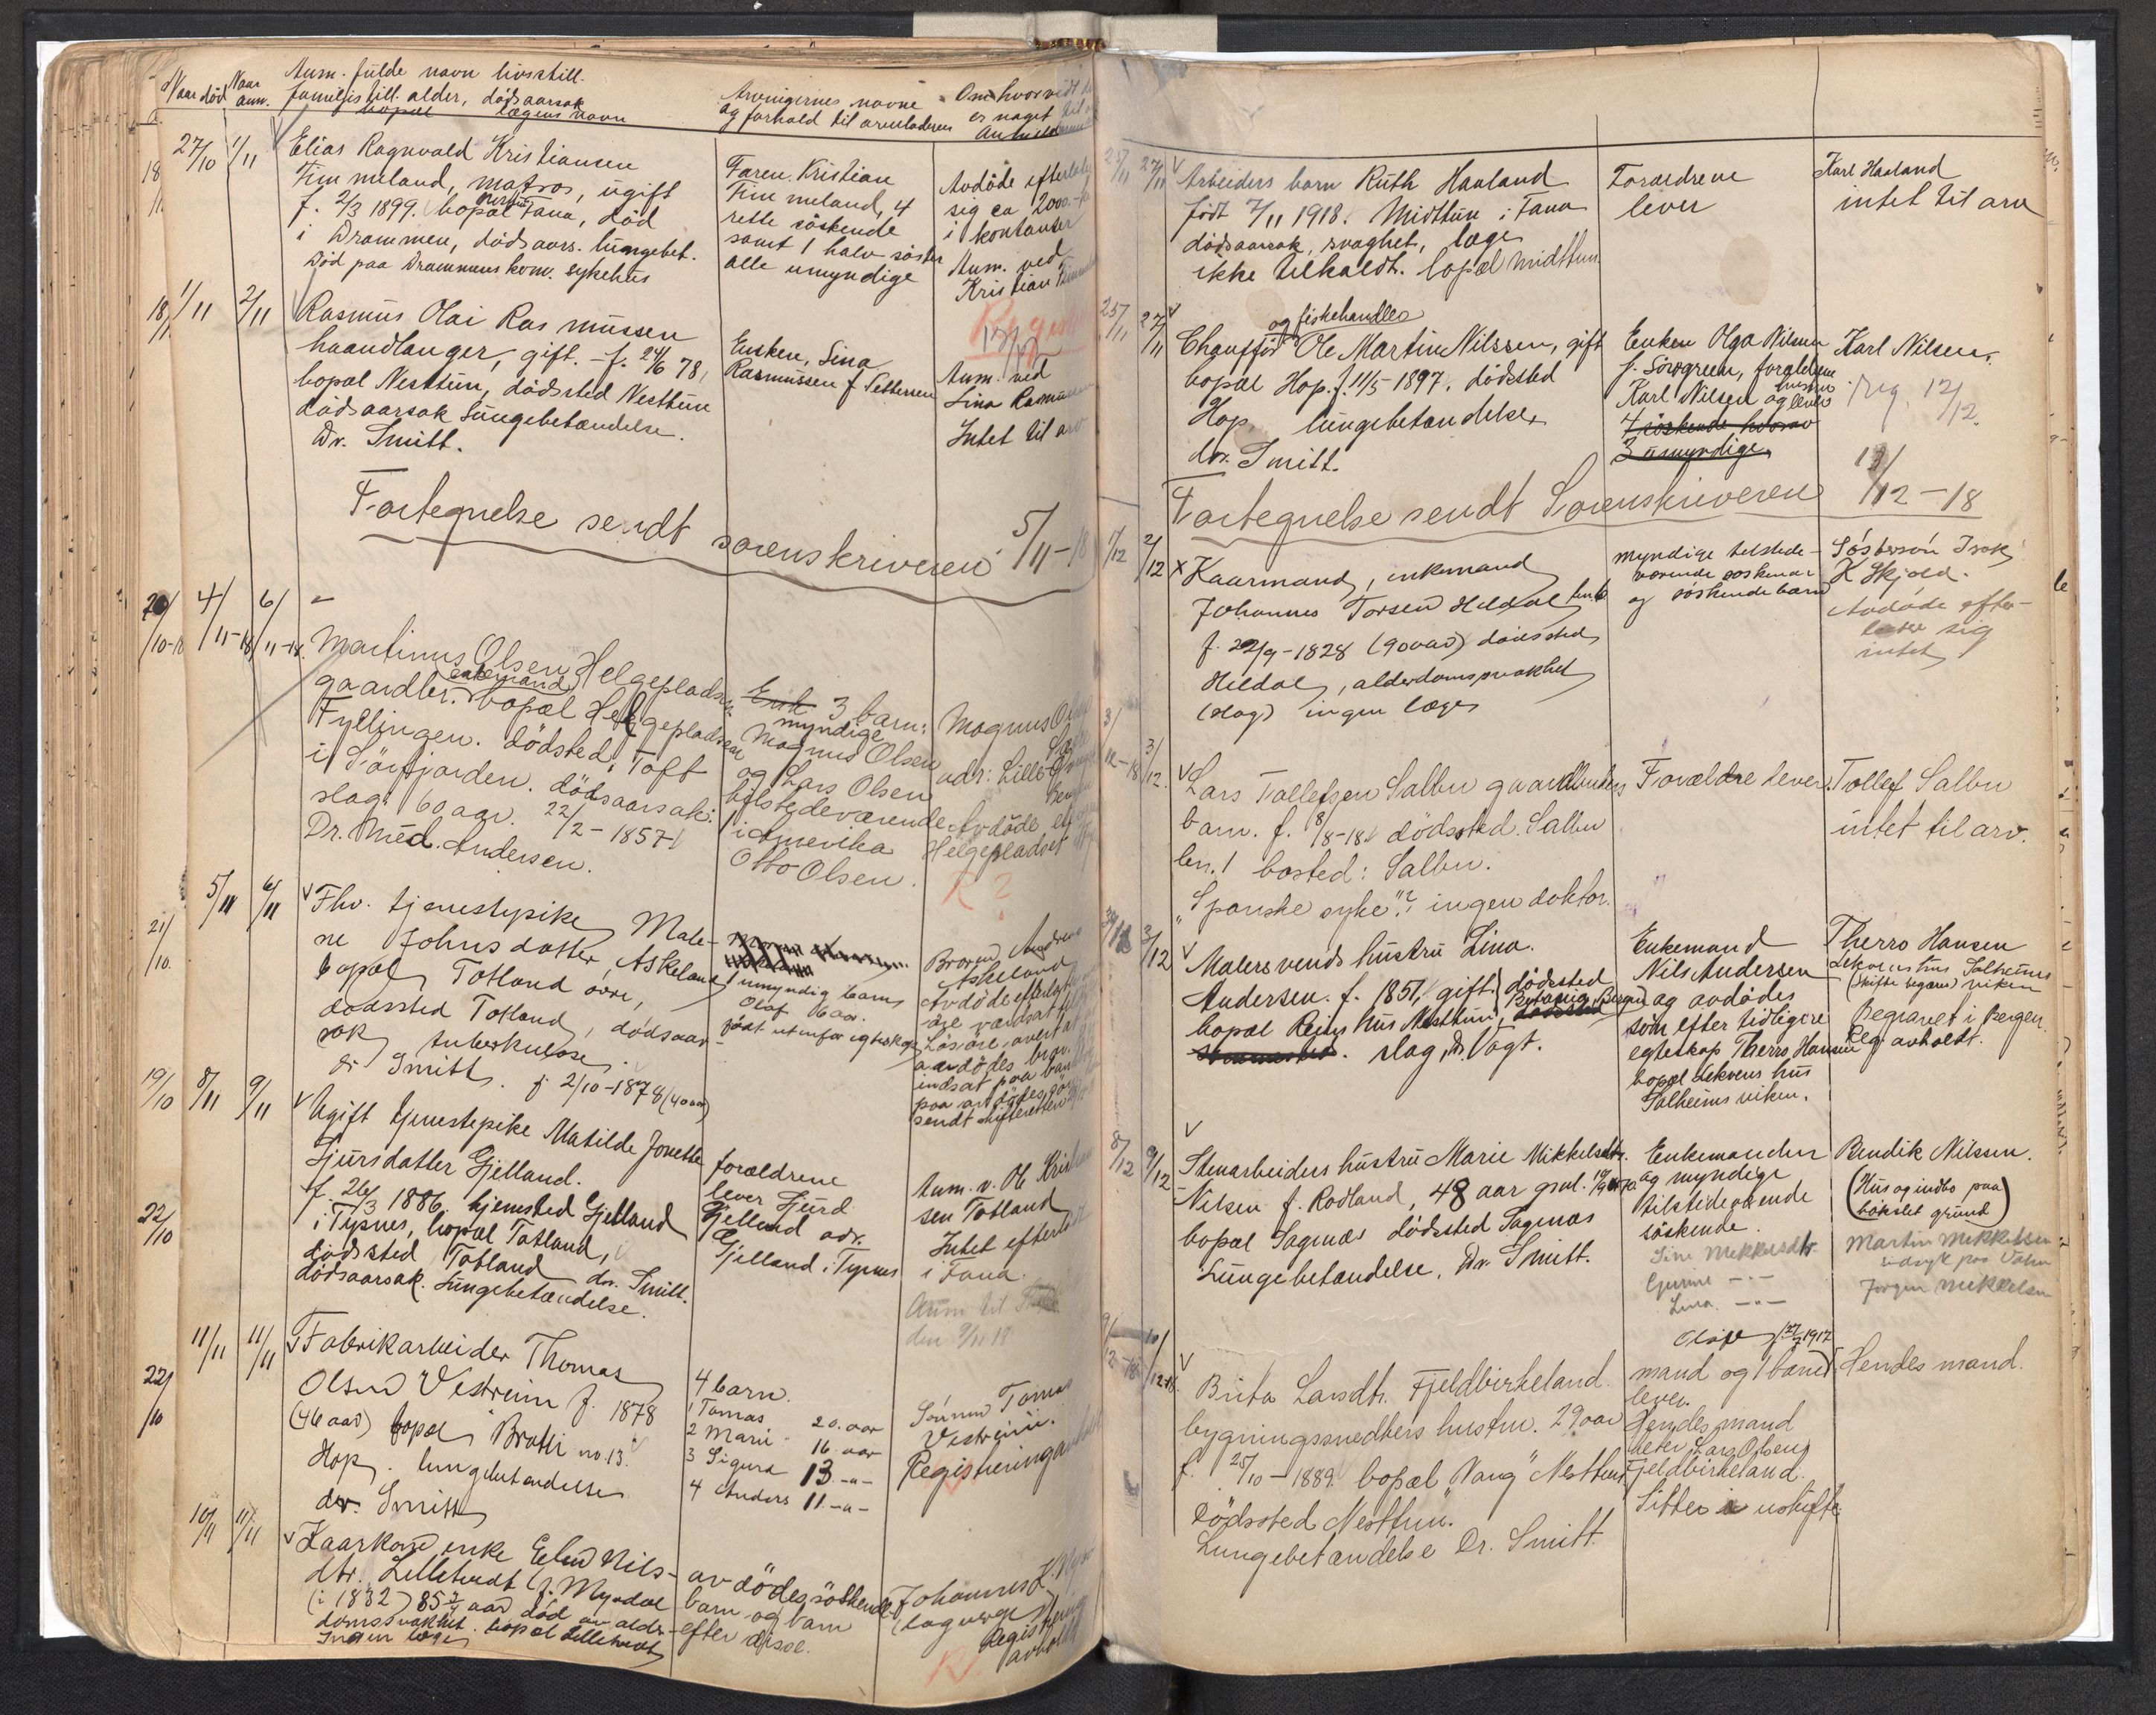 Naar død
Naar anm.
Anm. fulde navn livsstill.
familjestill. alder, dødsaarsak
bopæl lægens navn
Arvingernes navne
og forhold til arveladeren
Om hvorvidt
er noget til
Anmeld
27/10 1/11
Elias Ragnvald Kristiansen
Fimmeland, matros, ugift
f. 2/3 1899. bopæl Fana, død
i Drammen, dødsaars. lungebet.
Død paa Drammens kom. sykehus
Faren Kristian
Fimmeland, 4
rette söskende
samt 1 halv söster
alle umyndige
Avdöde efterlot
sig ca 2000.-
i kontanter
Anm. ved
Kristian
1/11 2/11
Rasmus Olai Rasmussen
haandlanger, gift. - f. 24/6 78,
bopæl Nesttun, dødsted Nesttun
dödsaarsak Lungebetændelse.
Dr. Smitt.
Enken, Sina
Rasmussen f. Pettersen
Anm. ved
Sina Rasmussen
Intet til arv
Fortegnelse sendt sorenskriveren 5/11-18
4/11-18 6/11-18.
Martinus Olsen Helgepladsen
enkemand
gaardbr. bopæl Helgepladsen
Fyllingen. dödsted: Toft
i Sörfjorden. dödsaarsak:
slag. 60 aar. 22/2-1857
Dr. Med. Andersen.
Enk 3 barn:
myndige
Magnus Olsen
og Lars Olsen
tilstedeværende
i Amerika
Otto Olsen.
Magnus
adr: Lille
Avdöde
Helgepladsen
R ?
21/10. 5/11 6/11
Fhv. tjenestepike Male-
ne Johnsdatter Askeland
bopæl Totland övre,
dødssted Totland, dødsaar-
sak tuberkulose
dr Smitt. f 2/10-1878 (40 aar)
1 umyndig barn
Olaf 6 aar.
födt utenfor egteskap
Broren Andreas
Askeland
Avdöde efterlot
eie værdsat til
Lösöre
avdödes begr.
indsat paa bank
sendt skifteretten
19/10 8/11 9/11
Ugift tjenestepike Matilde Jonette
Sjursdatter Gjelland.
f. 26/3 1886. hjemsted Gjelland
i Tysnes, bopæl Totland,
dödssted Totland dr. Smitt.
dödsaarsak. Lungebetændelse.
forældrene
lever Sjurd
Gjelland adr.
Gjelland i Tysnes
Anm. v. Ole Kristian
sen Totland
Intet efterlatt
i Fana.
22/10
11/11 11/11
Fabrikarbeider Thomas
Olsen Vestreim f. 1878
(46 aar) bopæl Bratli no. 13.
Hop. lungebetændelse
dr. Smitt
4 barn.
1 Tomas 20. aar
2 Marie 16 aar
3 Sigurd 13 -"-
4 Anders 11. -"-
Sönnen Tomas
Vestreim.
Registrering avholdt
22/10
10/11 11/11
Kaarkone, enke Eli Nils-
dtr. Lilletvedt f. Myrdal
(i 1832) 85 3/4 aar död av alder-
domssvakhet. bopæl Lilletvedt
Ingen læge
avdödes söskende-
barn og barn
efter disse.
Johannes L.
(lagverge)
Registrering
avholdt
25/11 27/11
Arbeiders barn Ruth Haaland
født 7/11 1918. Midttun i Fana
dödsaarsak, svaghet, læge
ikke tilkaldt. bopæl Midttun
Forældrene
lever
Karl Haaland
intet til arv
25/11 27/11
og fiskehandler
Chaufför Ole Martin Nilssen, gift
bopæl Hop. f. 11/5 1897. dödssted
Hop. lungebetændelse,
dr. Smitt.
Enken Olga Nilsen
f. Sörgreen, forældrene
Karl Nilsen og hustru lever
7 söskende hvorav
3 umyndige.
Karl Nilsen.
reg. 12/12.
Fortegnelse sendt Sorenskriveren 13/12-18
1/12 2/12
Kaarmand, enkemand
Johannes Torsen Heldal
f. 22/9-1828 (90 aar) dödssted
Heldal, alderdomssvakhet
(slag) ingen læge
myndige tilstede-
værende söskende
og söskendebarn
Sösterson Isak
K Skjold.
Avdöde efter-
later sig
intet
3/12-18 3/12.
Lars Tollefsen Salbu gaardbrukers
barn. f. 8/8-18. dödssted. Salbu
br. 1 bosted: Salbu.
"Spanske syke"? ingen doktor.
Forældre lever.
Tollef Salbu
intet til arv.
3/12
Malersvends hustru Lina.
Andersen. f. 1851, gift. dödssted
Betania, Bergen
bopæl Reins hus Nesttun,
slag, dr. Vogt.
Enkemand
Nils Andersen
og avdödes
søn efter tidligere
egteskap Therro Hansen
bopæl Lekvens hus
Solheimsviken.
Therro Hansen
Lekvens hus Solheims
viken
(skifte begjæres)
Begravet i Bergen.
Reg. avholdt.
8/12 9/12
Stenarbeiders hustru Marie Mikkelsdtr.
Nilsen f. Rødland, 48 aar gml.
bopæl Sagenes dödssted Sagenes
Lungebetændelse, Dr. Smitt.
Enkemanden
og myndige
tilstedeværende
söskende.
Sine Mikkelsdtr.
Gjurine -"-
Lina -"-
Bendik Nilssen.
(Hus og indbo paa
bökslet grund)
Martin Mikkelsen
sidsyk paa Valen
Jørgen Mikkelsen
9/12-18 10/12-18.
Brita Larsdtr. Fjeldbirkeland.
bygningssnedkers hustru. 29 aar
f. 25/10-1889. bopæl "Vang" Nesttun
Dödssted Nesttun.
Lungebetændelse Dr. Smitt.
mand og 1 barn
lever.
Hendes mand
heter Lars Olsen
Fjeldbirkeland.
Sitter i uskifte
Hendes mand.